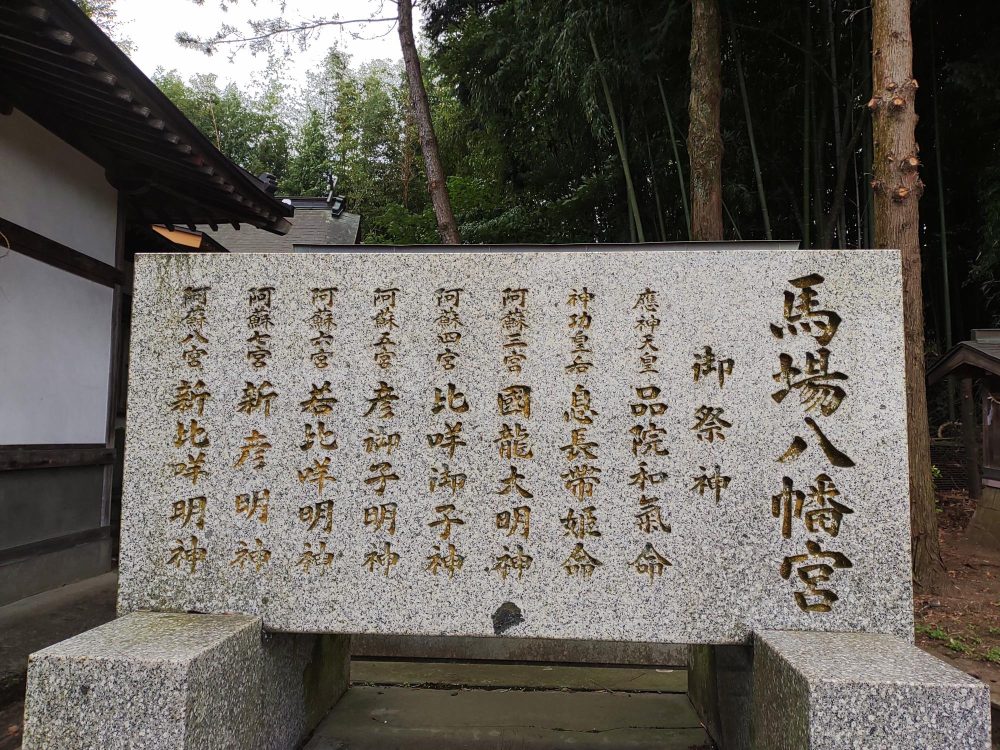 馬場八幡宮
御祭神
應神天皇 品陀和氣命
神功皇后 息長帯姫命
阿蘇三宮 國龍大明神
阿蘇四宮 比咩御子神
阿蘇五宮 彦御子明神
阿蘇六宮 若比咩明神
阿蘇七宮 新彦明神
阿蘇八宮 新比咩明神